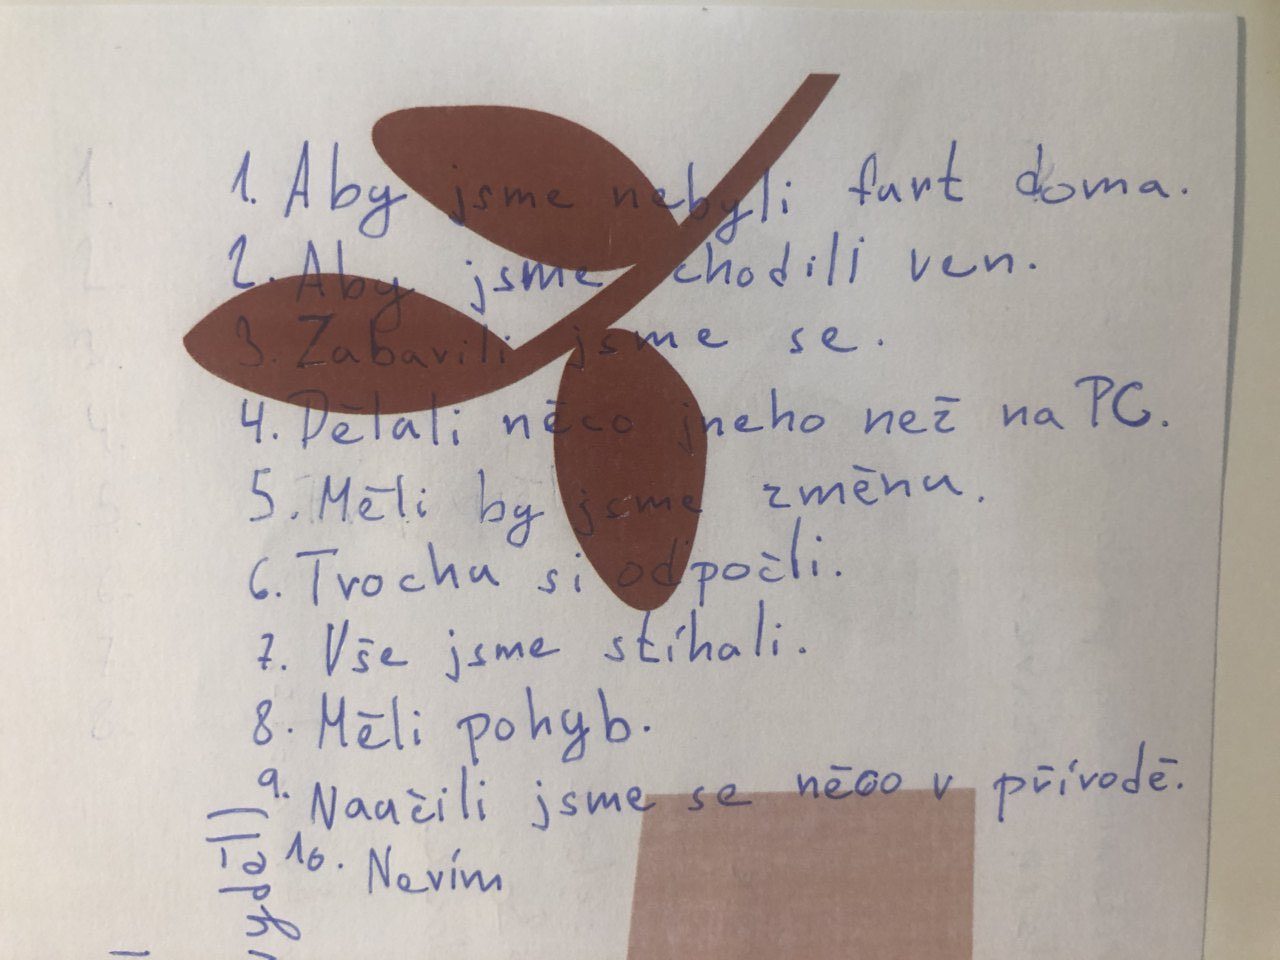 1. Aby jsme nebyli furt doma.
2. Aby jsme chodili ven.
3. Zabavili jsme se.
4. Dělali něco jneho než na PC.
5. Měli by jsme změnu.
6. Trochu si odpočli.
7. Vše jsme stíhali.
8. Měli pohyb.
9. Naučili jsme se něco v přírodě.
10. Nevím